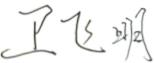 卫飞明